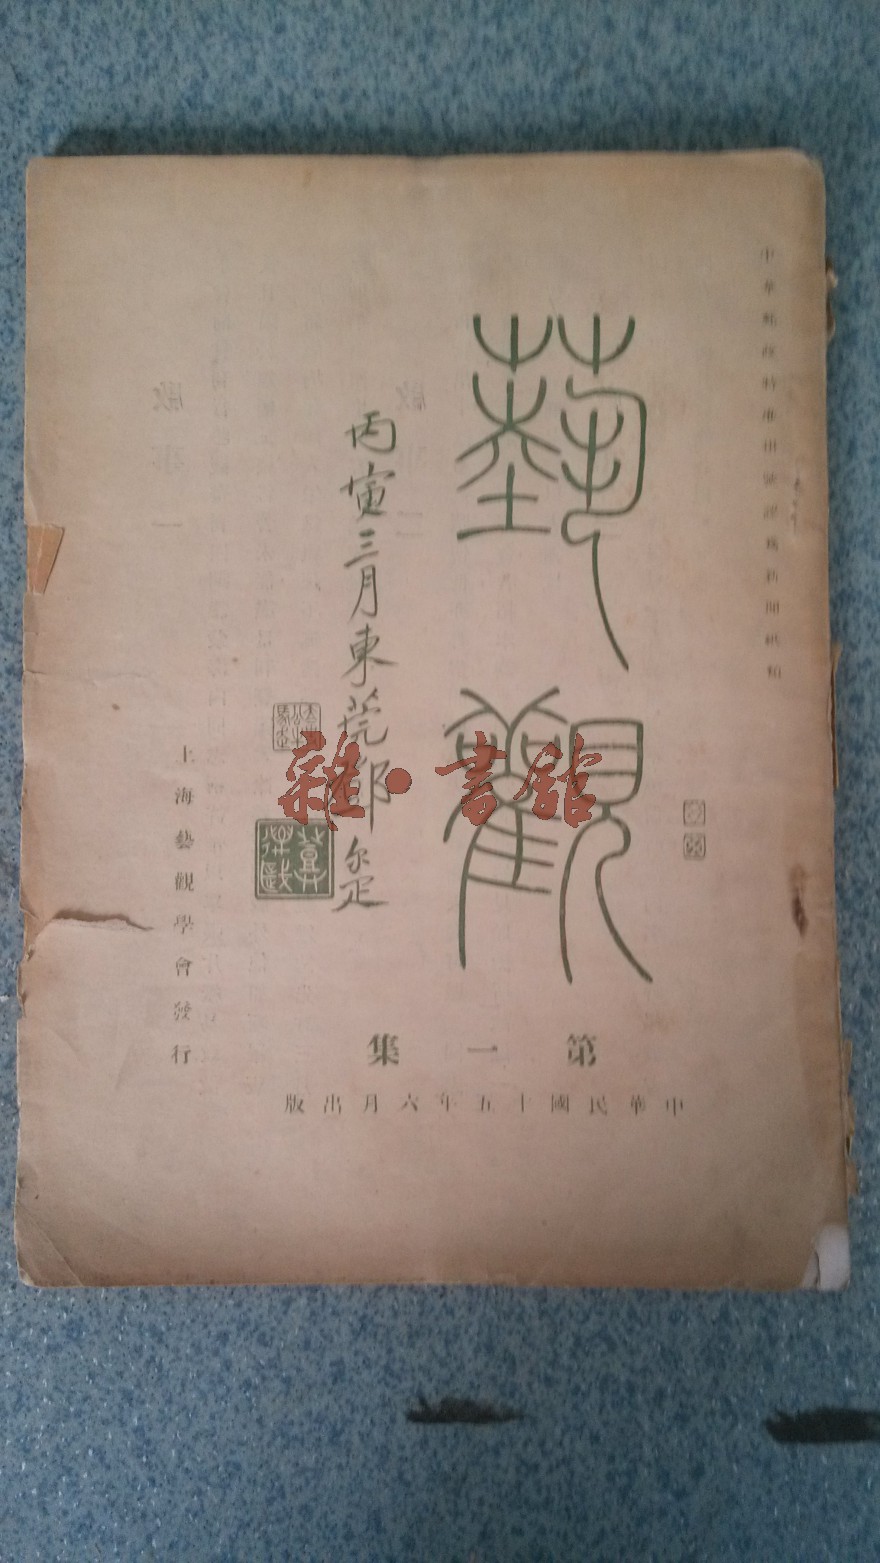 中華郵政特准掛號認爲新聞紙類
藝觀
丙寅三月東莞鄧尔疋
雜·書館
上海藝觀學會發行
第一集
中華民國十五年六月出版